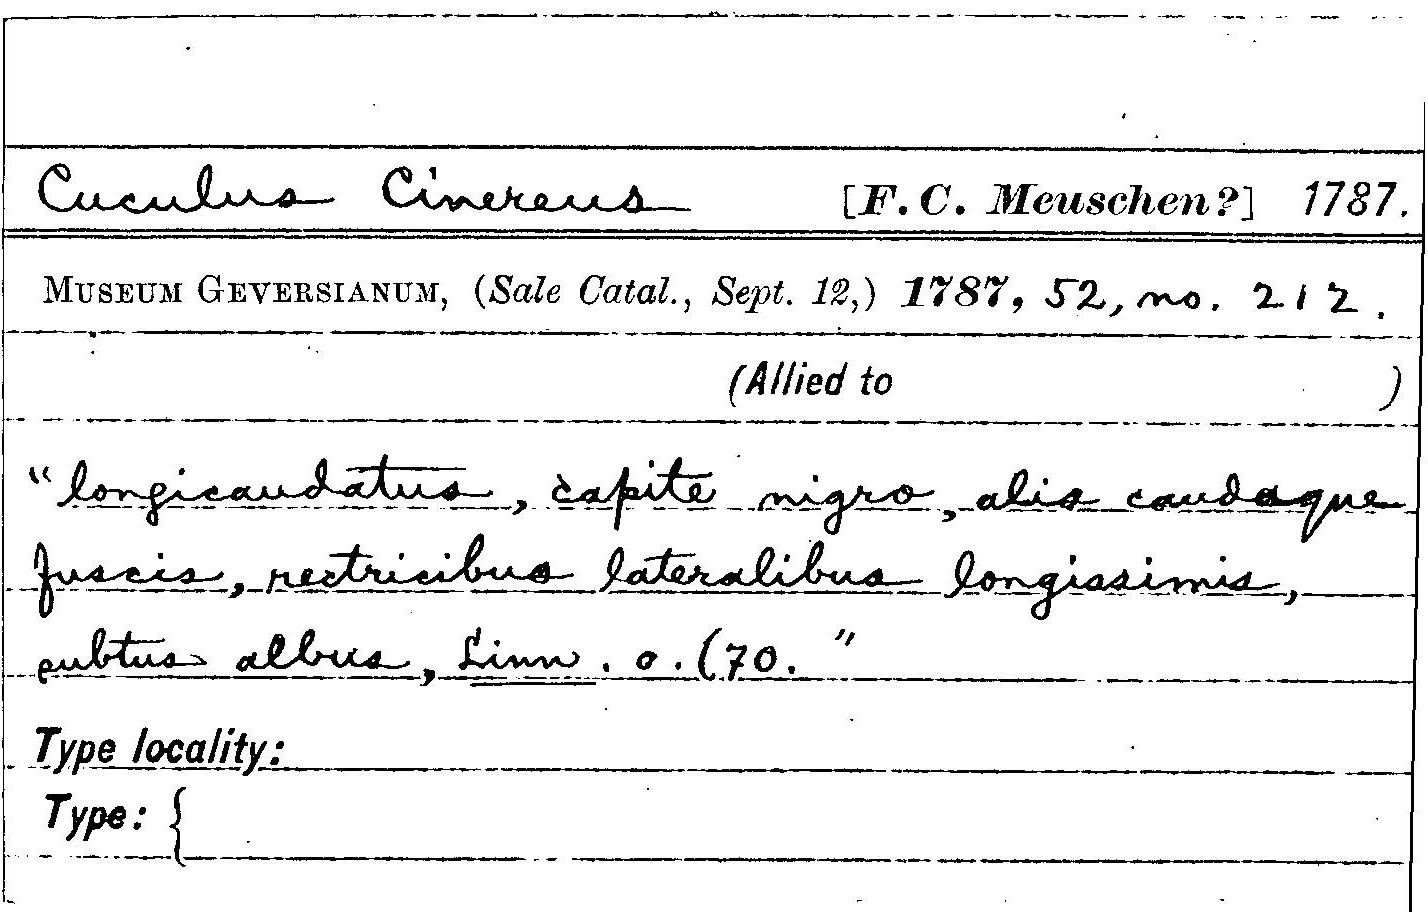 Cuculus Cinereus [F. C. Meuschen?] 1787.
Museum Geversianum, (Sale Catal., Sept. 12,) 1787, 52, no. 212.
(Allied to )
"longicaudatus, capite nigro, alis caudaque
fuscis, rectricibus lateralibus longissimis,
subtus albus, Linn. o. (70."
Type locality:
Type: {